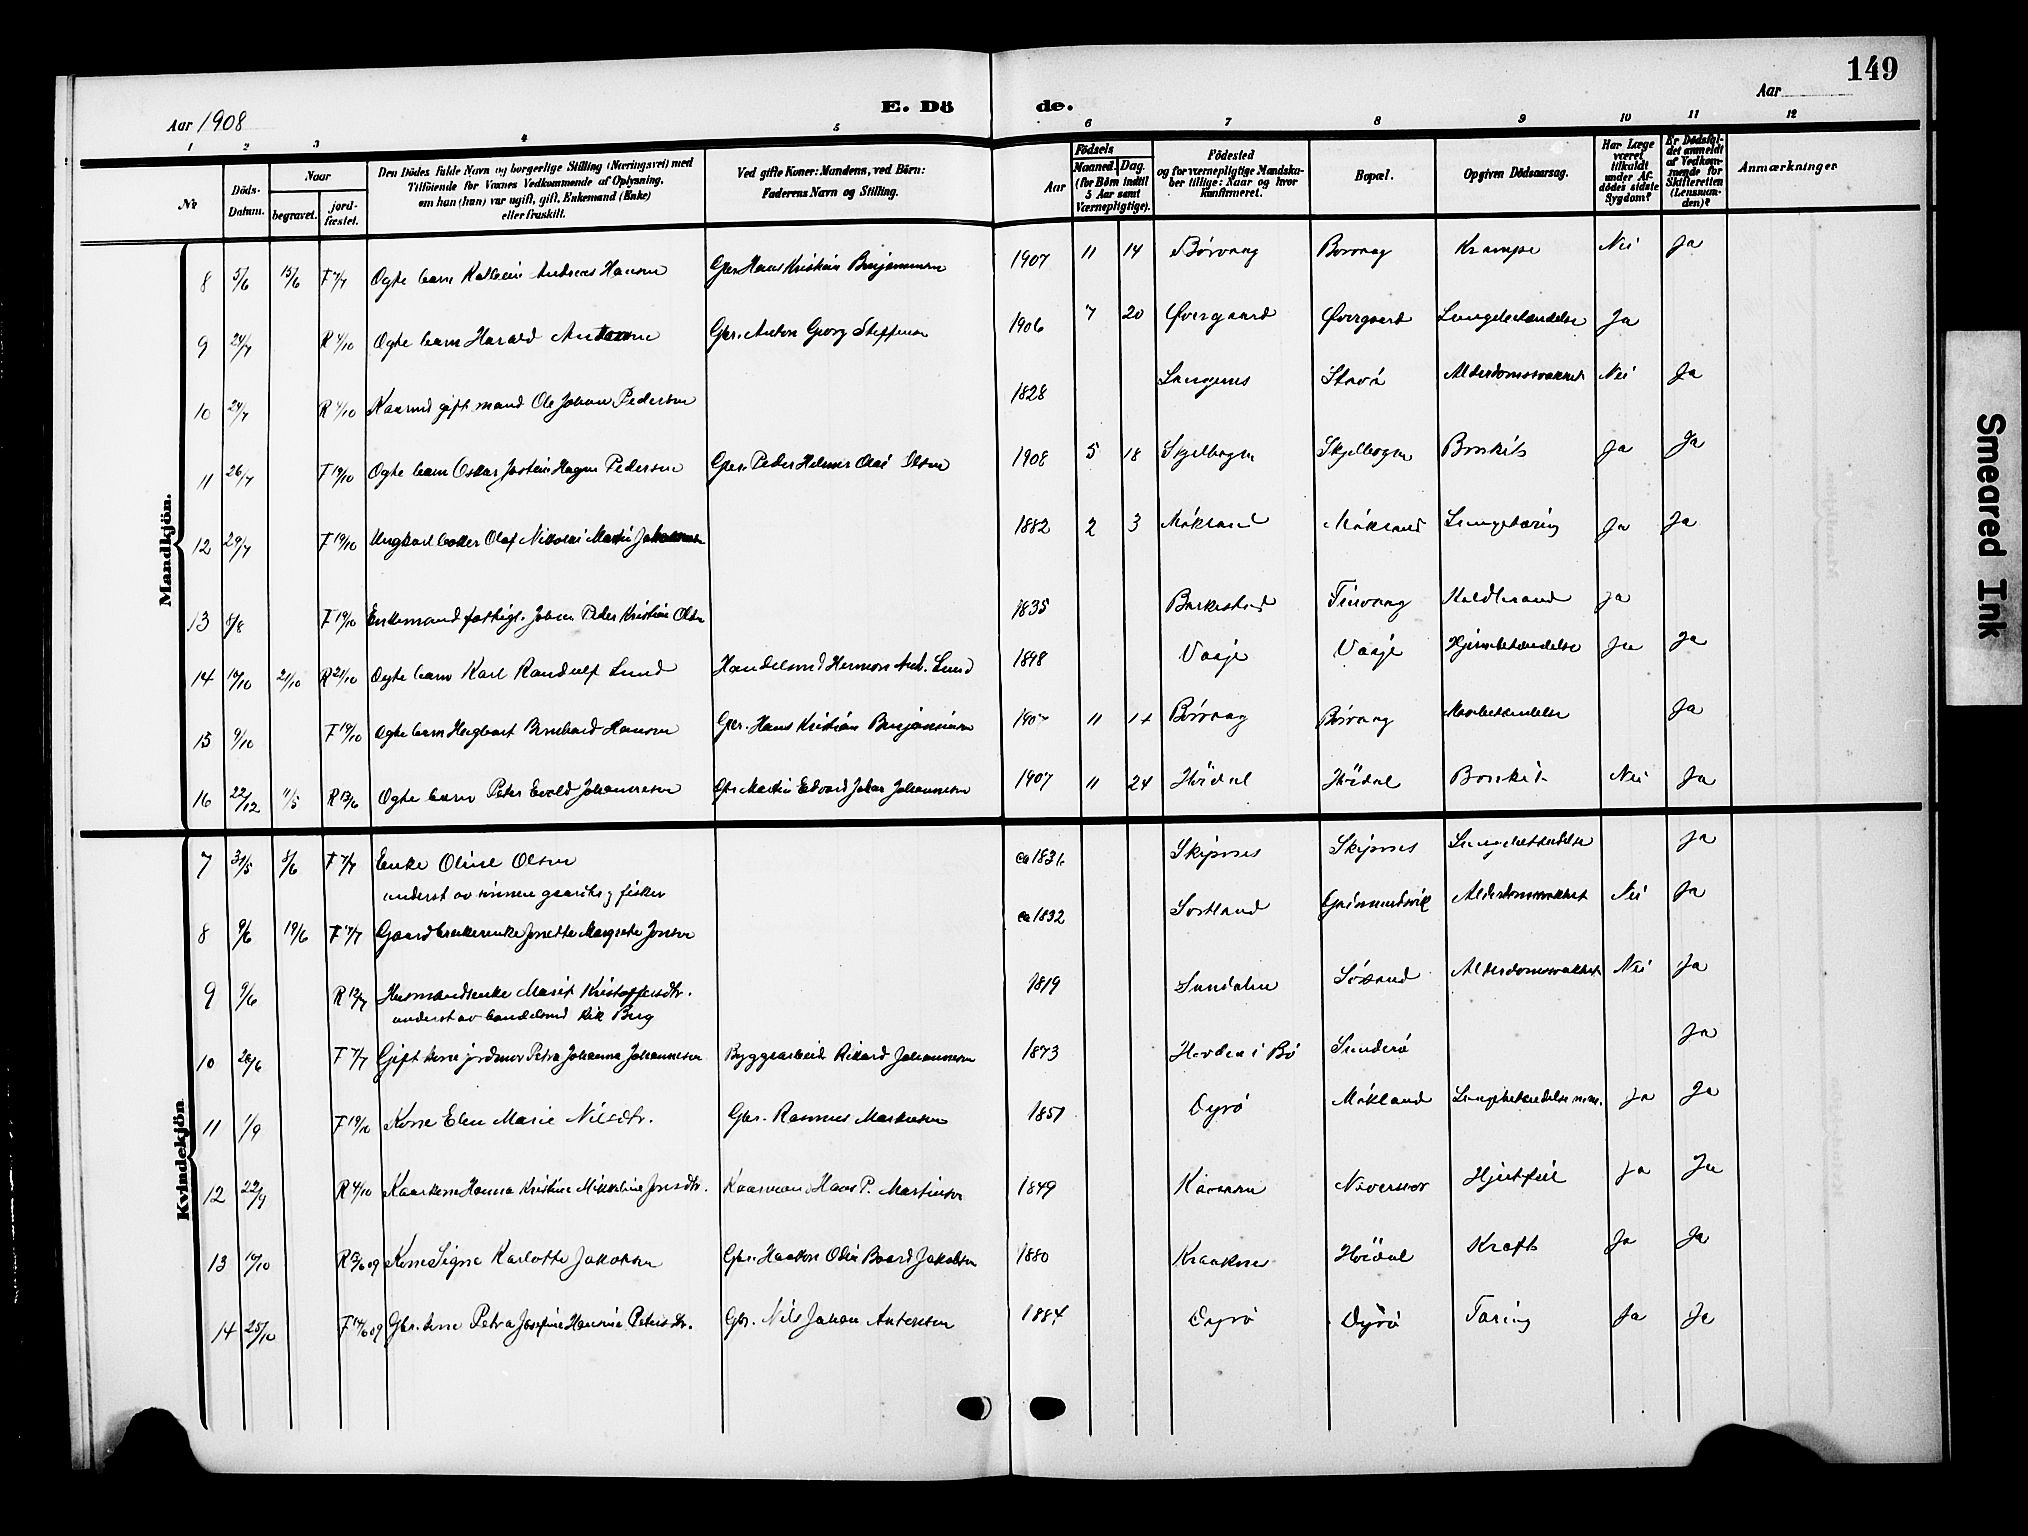 149
Aar 1908
E. Dö de.
Aar
1 2 3 4 5 6 7 8 9 10 11 12
№
Döds-Datum.
Naar
begravet.
jord-fæstet.
Den Dödes fulde Navn og borgerlige Stilling (Næringsvei) med
Tilföiende for Voxnes Vedkommende af Oplysning,
om han (hun) var ugift, gift, Enkemand (Enke)
eller fraskilt.
Ved gifte Koner: Mandens, ved Börn:
Faderens Navn og Stilling.
Födsels
Aar
Maaned. Dag.
(for Börn indtil
5 Aar samt
Værnepligtige).
Födested
og for værnepligtige Mandska-
ber tillige: Naar og hvor
konfirmeret.
Bopæl.
Opgiven Dödsaarsag.
Har Læge
været
tilkaldt
under Af-
dödes sidste
Sygdom?
Er Dödsfal-
det anmeldt
af Vedkom-
mende for
Skifteretten
(Lensman-
den)?
Anmærkninger
Mandkjön.
8 5/6 15/6 F 7/7 Ægte barn Andreas Hansen Gbr. Hans Kristian Benjaminsen 1907 11 14 Börvaag Börvaag Krampe Nei Ja
9 24/7 R 4/10 Ægte barn Harald Antonsen Gbr. Anton Georg Steffensen 1906 7 20 Övergaard Övergaard Lungebetændelse Ja
10 24/7 R 4/10 gift mand Ole Johan Pedersen 1828 Langenes Stavö Alderdomssvakhet Nei Ja
11 26/7 F 19/10 Ægte barn Oskar Jostein Hagen Pedersen Gbr. Peder Helmer Olai Olsen 1908 5 18 Skjelbogen Skjelbogen Bronkit Ja Ja
12 29/7 F 19/10 Ungkarl Olaf Nikolai Martin 1882 2 3 Mökland Mökland Lungetæring Ja Ja
13 8/8 F 19/10 Enkemand fattigl. Johan Peder Kristian Olsen 1835 Barkestad Tinvaag Koldbrand Ja
14 10/10 21/10 R 21/10 Ægte barn Karl Randulf Lund Handelsmd Herman Ant. Lund 1898 Vaaje Vaaje Hjernebetændelse Ja Ja
15 9/10 F 19/10 Ægte barn Bernhard Hansen Gbr. Hans Kristian Benjaminsen 1907 11 14 Börvaag Börvaag Mavebetændelse Ja
16 22/12 11/5 R 13/6 Ægte barn Peter Evald Johannesen Gbr. Martin Edvard Johan Johannesen 1907 11 24 Höidal Höidal Bronkit Nei Ja
Kvindekjön
7 31/5 8/6 F 7/7 Enke Oline Olsen ca 1836 Skipnes Skipnes Lungebetændelse Ja
underst av sönnen gaardbr. fisker
8 9/6 19/6 F 7/7 Gaardbrukerenke Jonette Margrete Jonsen ca 1832 Sortland Guinmundsvik Alderdomssvakhet Nei Ja
9 9/6 R 12/7 Husmandsenke Marit Kristoffersdtr. 1819 Sundalen Sösand Alderdomssvakhet Nei Ja
underst av handelsmd Rik Berg
10 26/6 F 7/7 Gift kone jordmor Petra Johanna Johannesen Byggearbeid. Rikard Johannesen 1873 Hovden i Bö Sunderö Ja
11 1/9 F 19/10 Kone Elen Marie Nilsdtr. Gbr. Rasmus Martinsen 1851 Dyrö Mökland Lungebetændelse Ja Ja
12 22/9 R 4/10 Kaarkone Hanna Kristine Mikkeline Jonsdtr. Kaarmand Hans P. Martinsen 1849 Naversnor Hjertefeil Ja Ja
13 10/10 R 13/6 09 Kone Signe Karlotte Jakobsen Gbr. Haakon Odin Baard Jakobsen 1880 Kraaknes Höidal Kræft Ja Ja
14 25/10 F 14/6 09 Gbr. kone Petra Josefine Hansine Petersdtr. Gbr. Nils Johan Antonsen 1884 Dyrö Dyrö Tæring Ja Ja
Smeared Ink